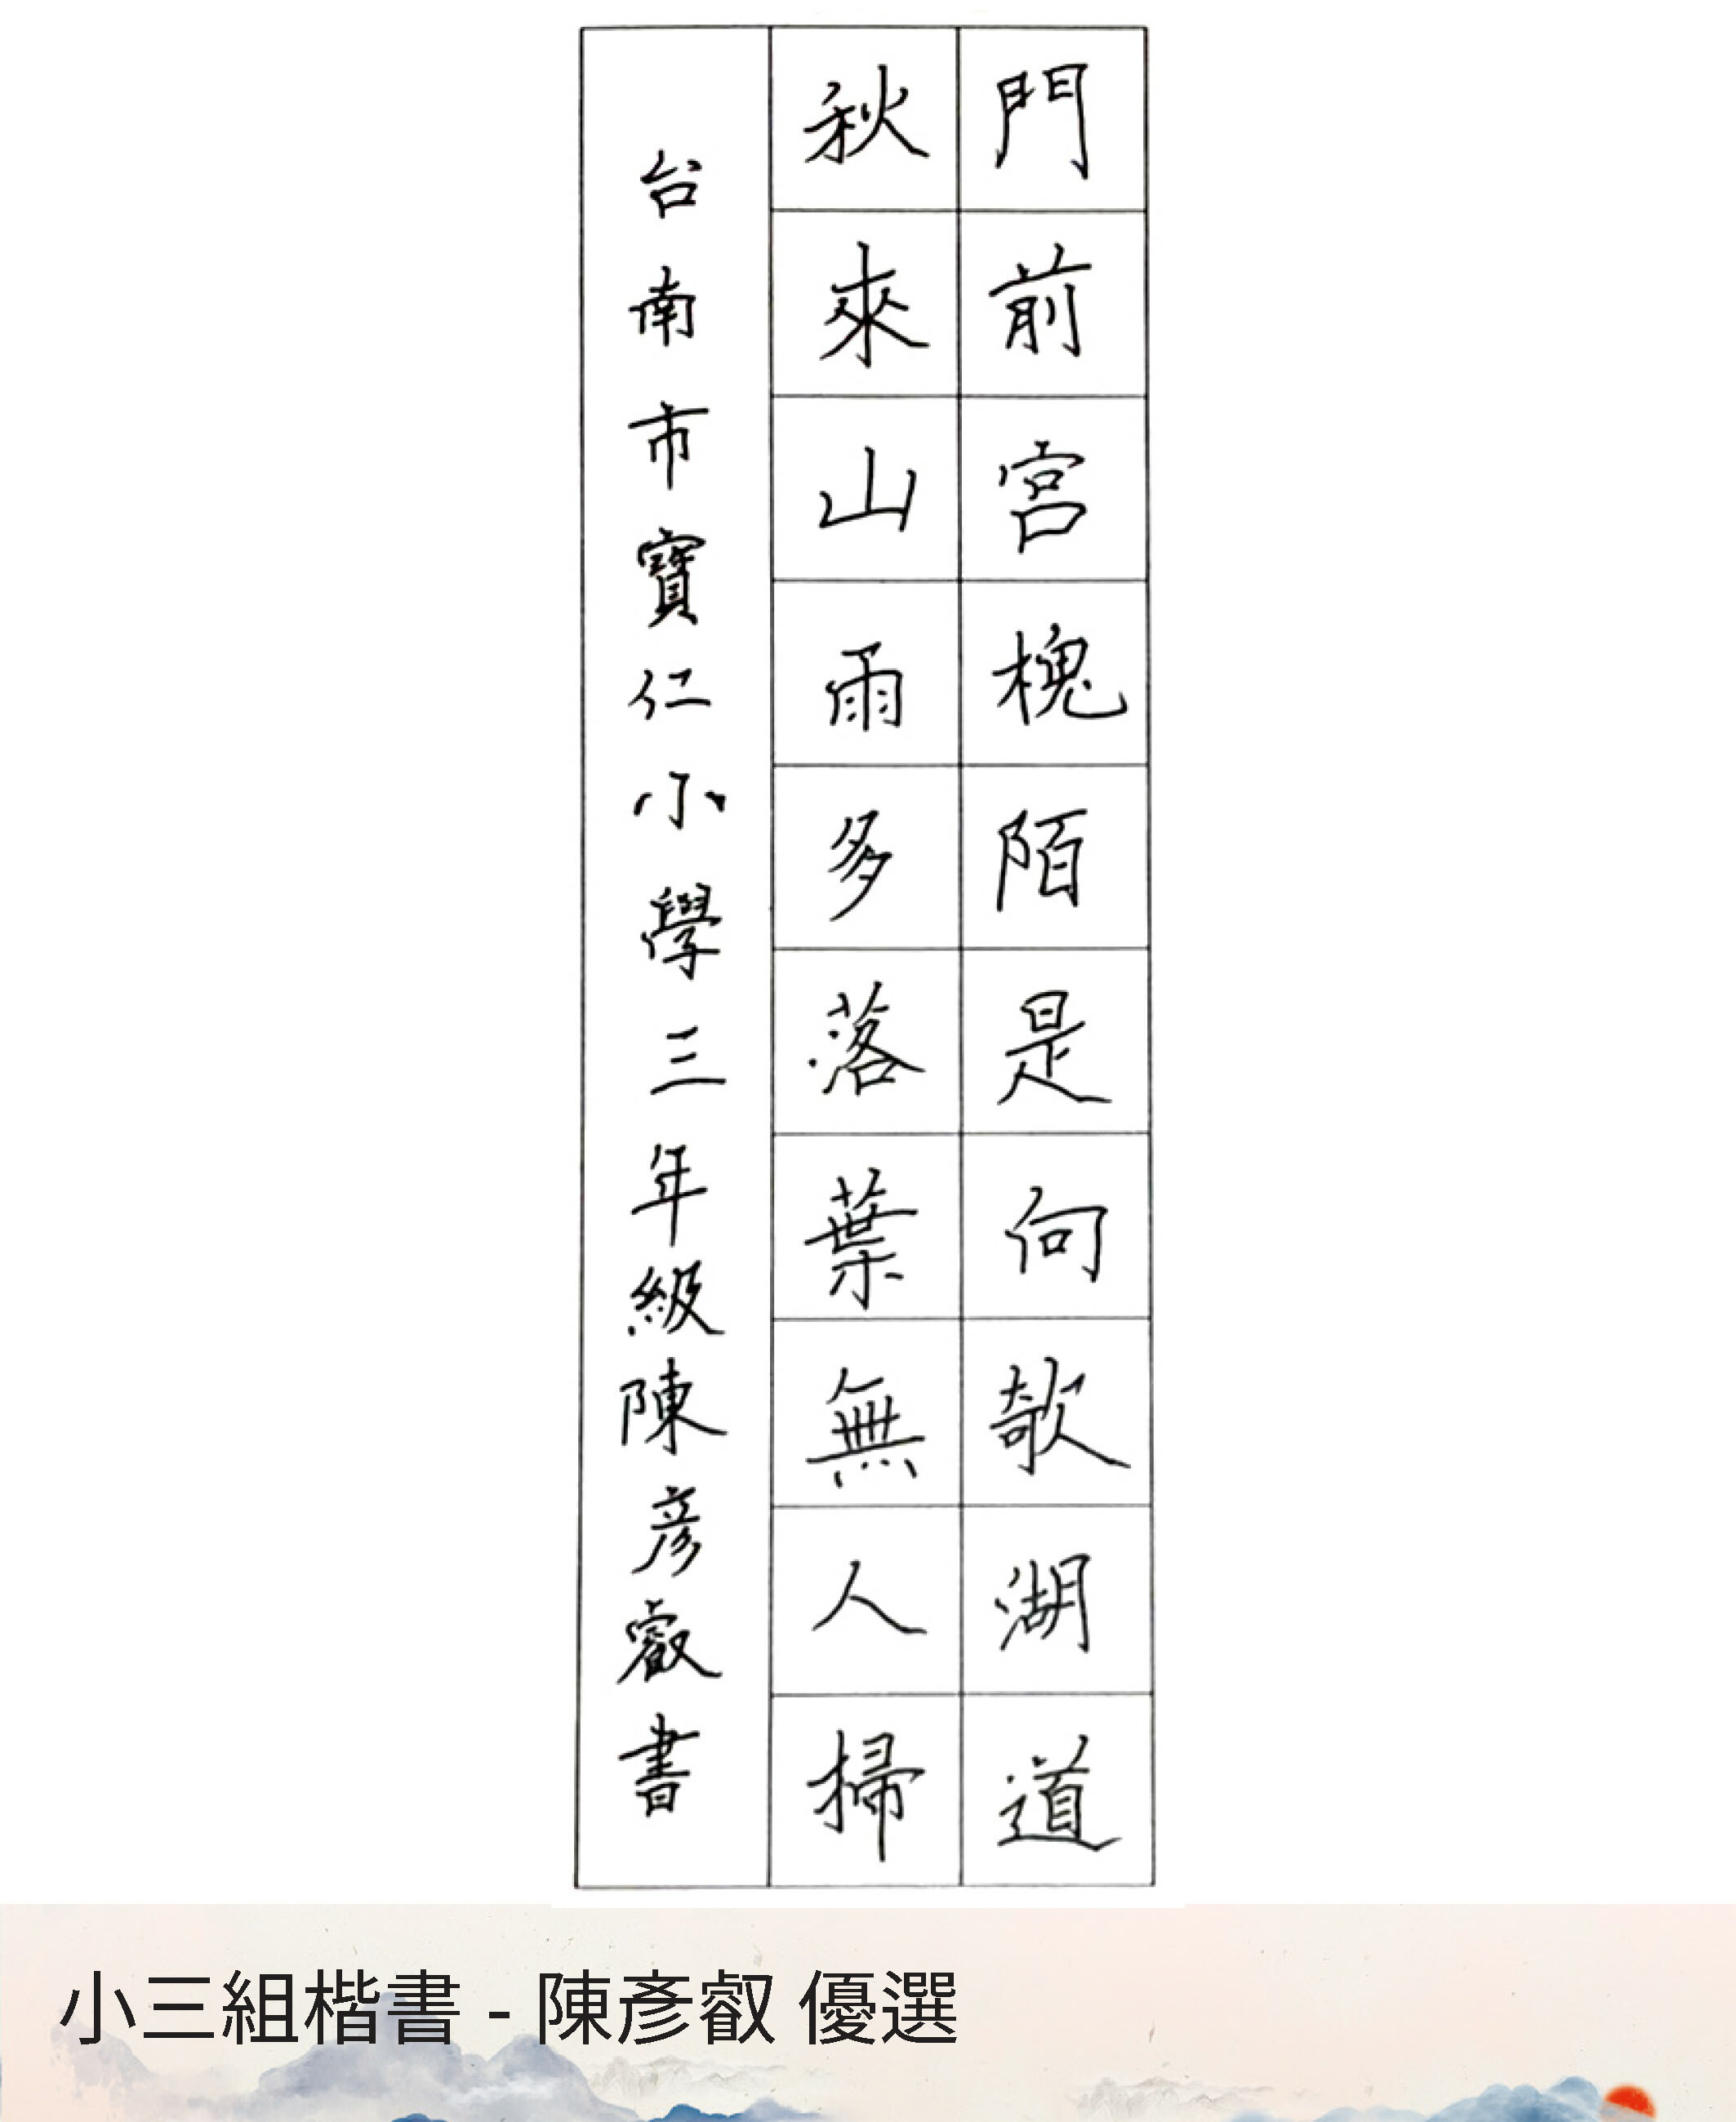 門前宮槐陌是向欹湖道
秋來山雨多落葉無人掃
台南市寶仁小學三年級陳彥叡書
小三組楷書 - 陳彥叡 優選